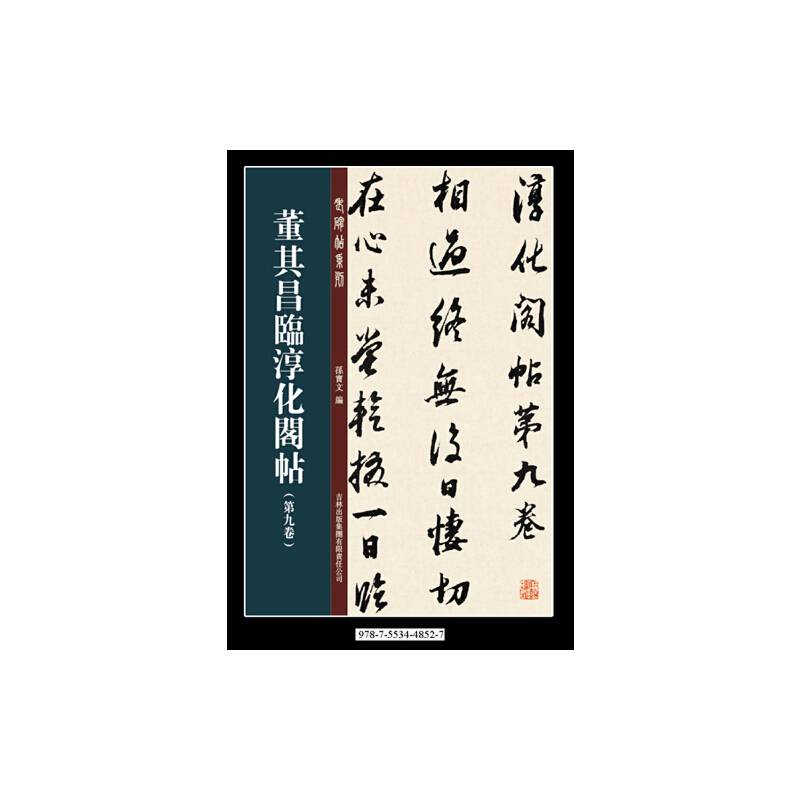 淳化阁帖第九卷
相過終無復日悽切
在心未嘗輟一日臨
老碑帖系列
孫寶文 編
吉林出版集團有限責任公司
董其昌臨淳化閣帖
(第九卷)
978-7-5534-4852-7